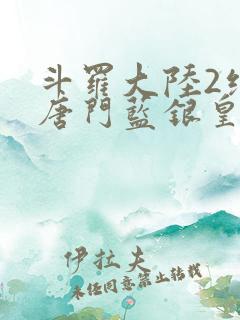 斗羅大陸2
唐門藍銀皇
伊拉夫
未经同意禁止转载